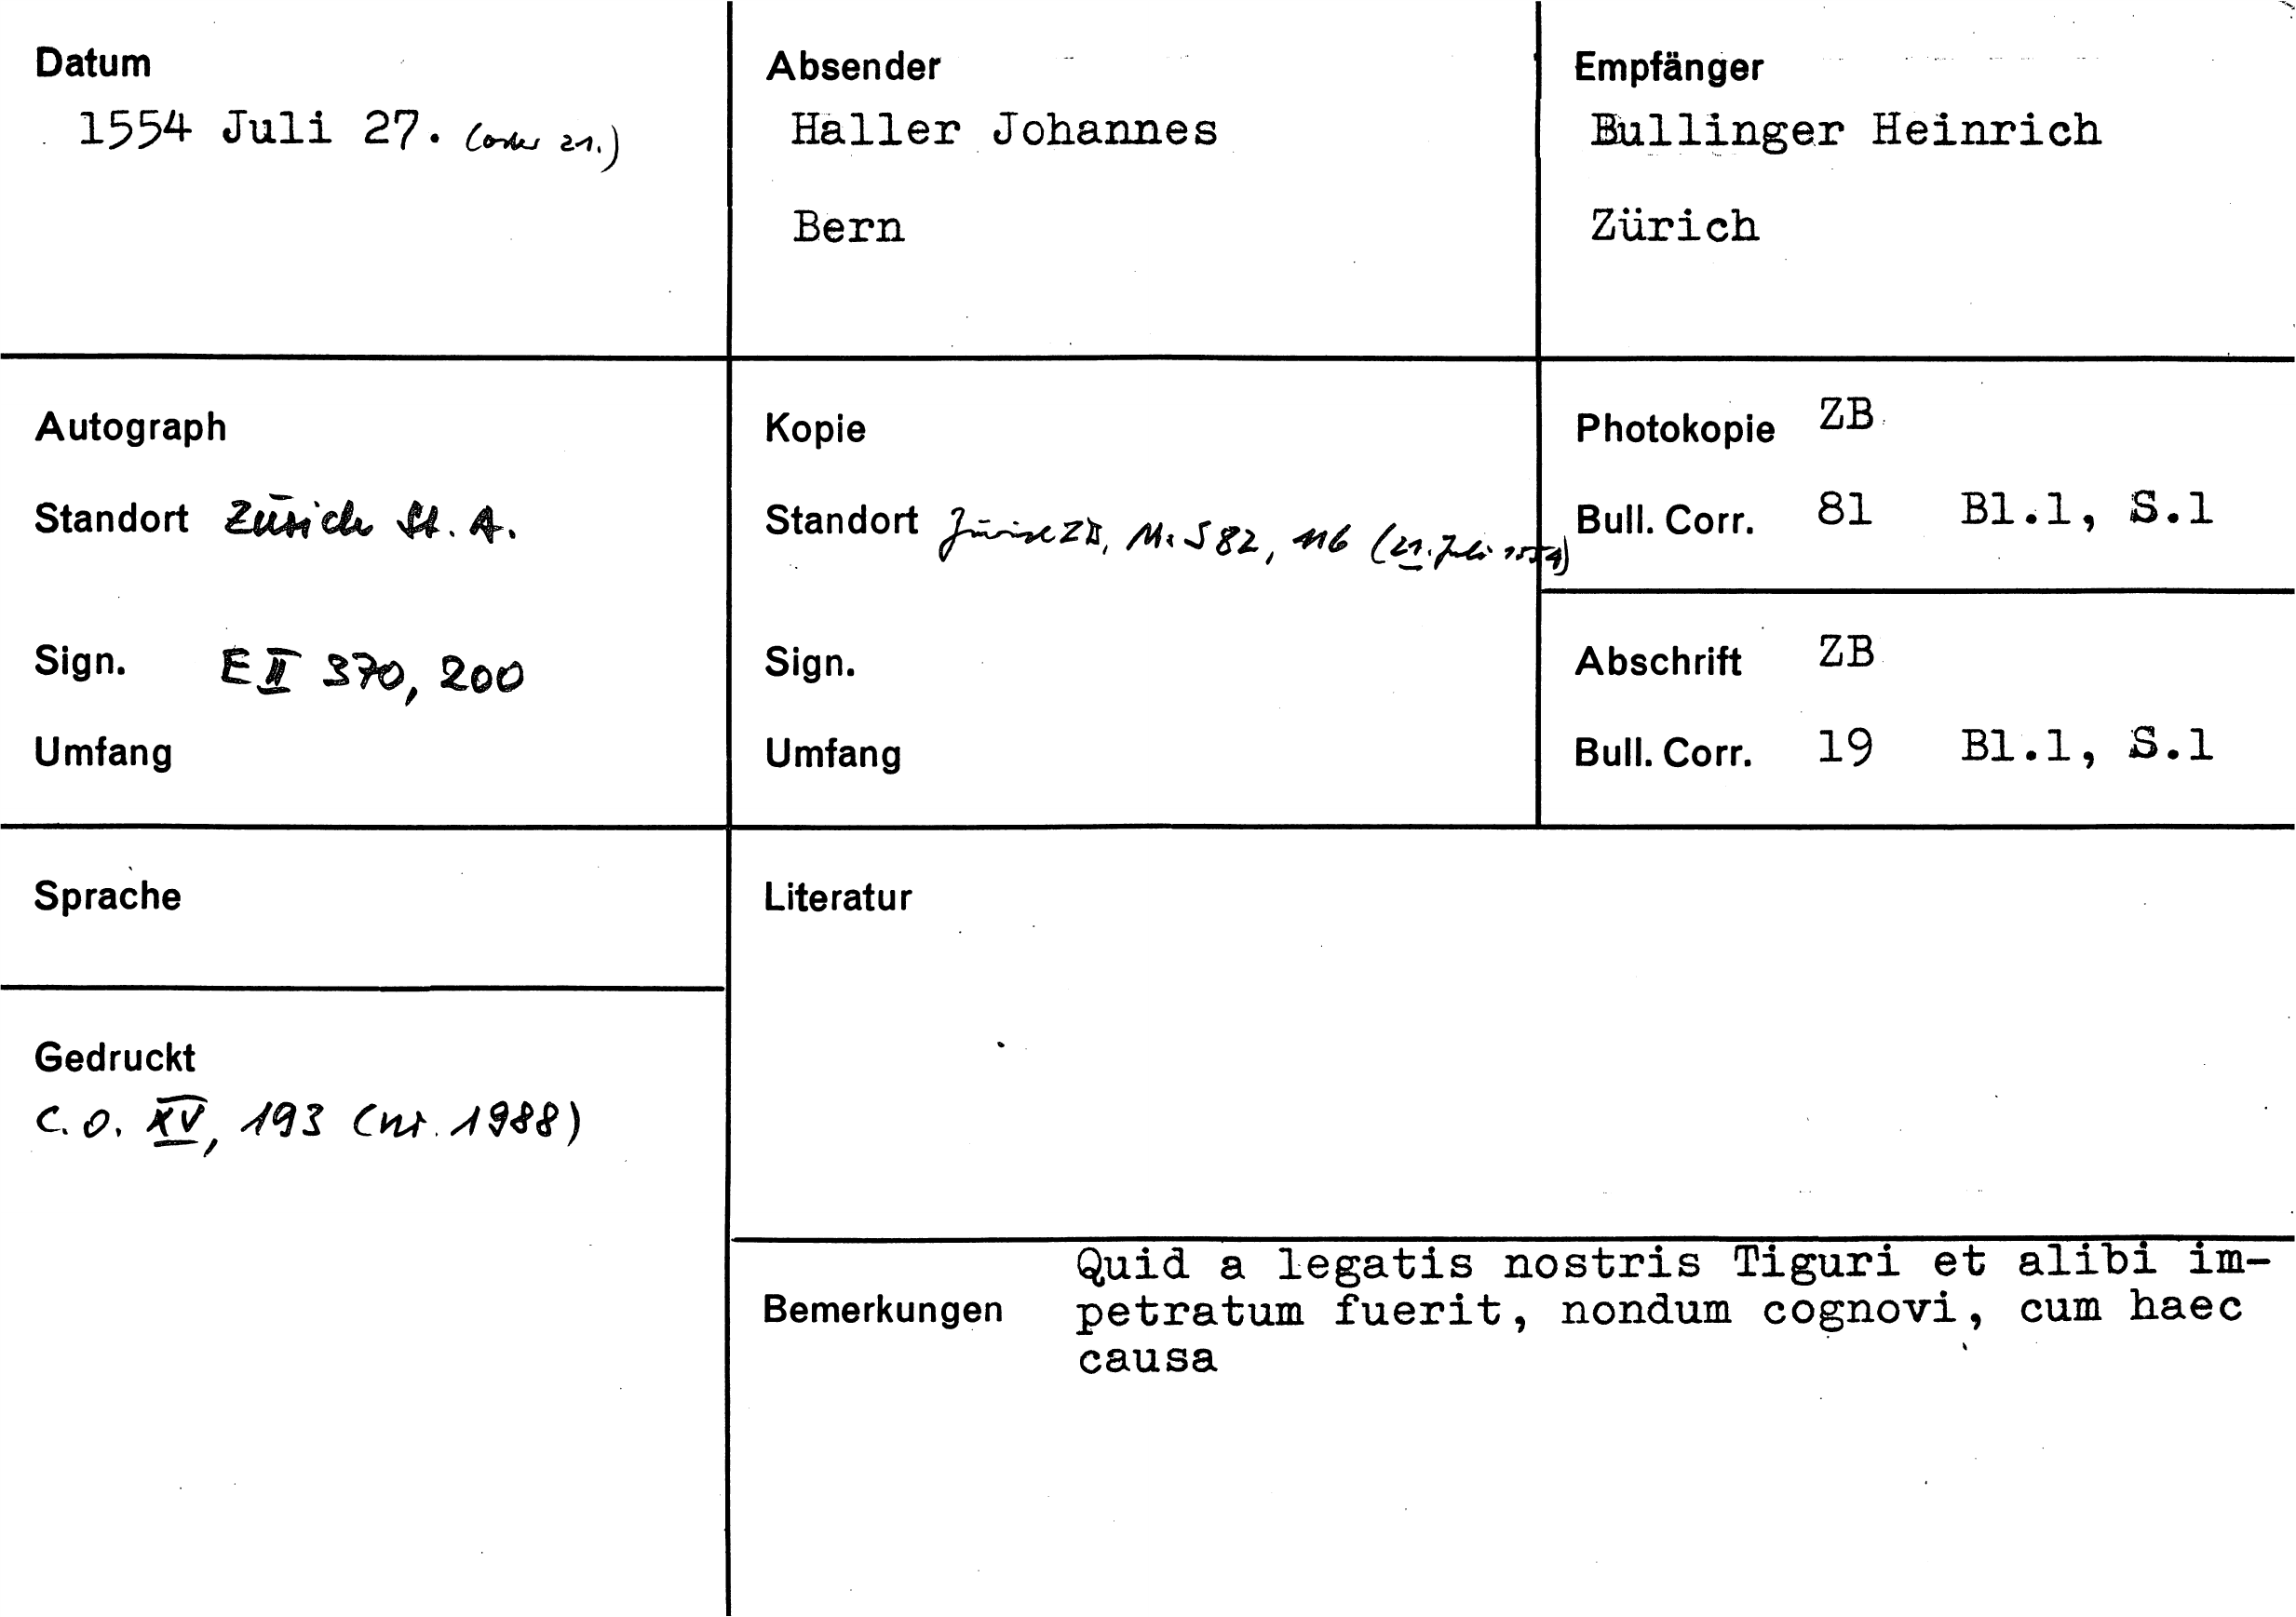 Datum
1554 Juli 27. (oder 21.)
Absender
Haller Johannes
Bern
Empfänger
Bullinger Heinrich
Zürich
Autograph
Standort Zürich St. A.
Sign. E II 370, 200
Umfang
Kopie
Standort Zürich ZB, Ms S 82, 116 (21. Juli 1554)
Sign.
Umfang
Photokopie ZB
Bull. Corr. 81 Bl.1, S.1
Abschrift ZB
Bull. Corr. 19 Bl.1, S.1
Sprache
Gedruckt
C. O. XV, 193 (nr. 1988)
Literatur
Bemerkungen
Quid a legatis nostris Tiguri et alibi im-
petratum fuerit, nondum cognovi, cum haec
causa